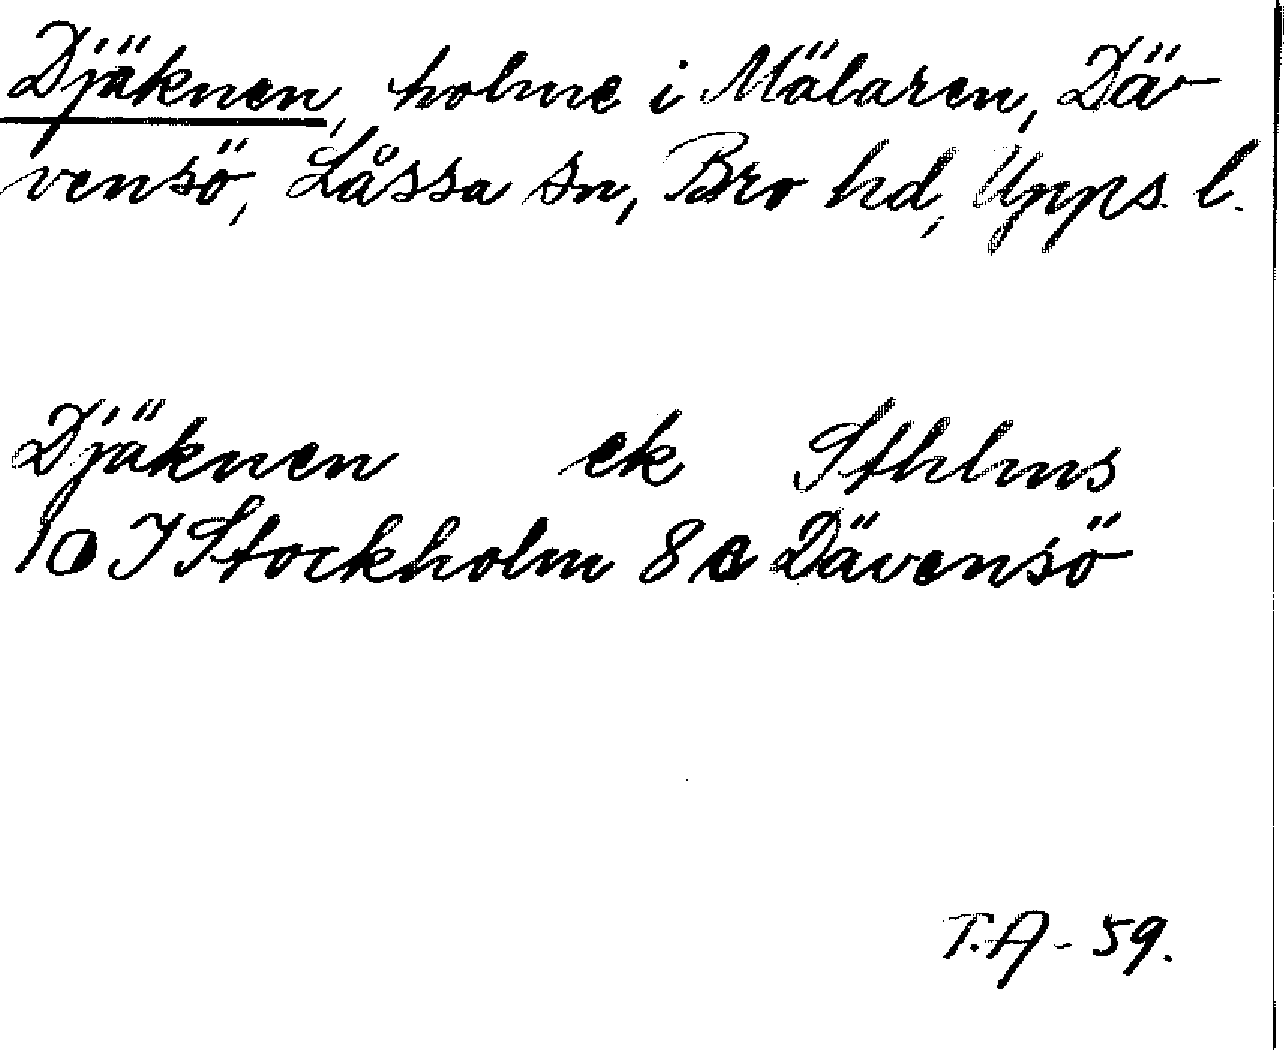 Djäknen, holme i Mälaren, Dä-
vensö, Låssa sn, Bro hd, Upps. l.
Djäknen ek Sthlms
10 I Stockholm 8 c Dävensö
T.A - 59.